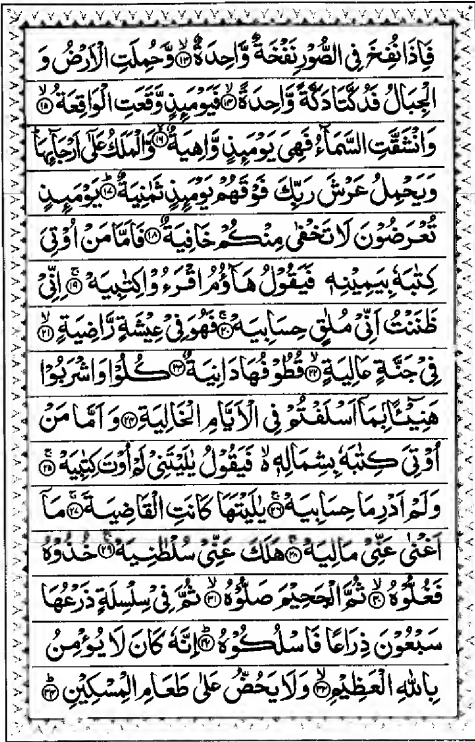 فَاِذَا نُفِخَ فِي الصُّوْرِ نَفْخَةٌ وَّاحِدَةٌ ۙ۝۱۳ وَّحُمِلَتِ الْاَرْضُ وَ
الْجِبَالُ فَدُكَّتَا دَكَّةً وَّاحِدَةً ۙ۝۱۴ فَيَوْمَىِٕذٍ وَّقَعَتِ الْوَاقِعَةُ ۙ۝۱۵
وَانْشَقَّتِ السَّمَآءُ فَهِيَ يَوْمَىِٕذٍ وَّاهِيَةٌ ۙ۝۱۶ وَّالْمَلَكُ عَلٰٓى اَرْجَآىِٕهَا ؕ
وَيَحْمِلُ عَرْشَ رَبِّكَ فَوْقَهُمْ يَوْمَىِٕذٍ ثَمٰنِيَةٌ ؕ۝۱۷ يَوْمَىِٕذٍ
تُعْرَضُوْنَ لَا تَخْفٰى مِنْكُمْ خَافِيَةٌ ۝۱۸ فَاَمَّا مَنْ اُوْتِيَ
كِتٰبَهٗ بِيَمِيْنِهٖ ۙ فَيَقُوْلُ هَآؤُمُ اقْرَءُوْا كِتٰبِيَهْ ۚ۝۱۹ اِنِّيْ
ظَنَنْتُ اَنِّيْ مُلٰقٍ حِسَابِيَهْ ۚ۝۲۰ فَهُوَ فِيْ عِيْشَةٍ رَّاضِيَةٍ ۙ۝۲۱
فِيْ جَنَّةٍ عَالِيَةٍ ۙ۝۲۲ قُطُوْفُهَا دَانِيَةٌ ۝۲۳ كُلُوْا وَاشْرَبُوْا
هَنِيْٓـًٔۢا بِمَاۤ اَسْلَفْتُمْ فِي الْاَيَّامِ الْخَالِيَةِ ۝۲۴ وَاَمَّا مَنْ
اُوْتِيَ كِتٰبَهٗ بِشِمَالِهٖ ۙ فَيَقُوْلُ يٰلَيْتَنِيْ لَمْ اُوْتَ كِتٰبِيَهْ ۚ۝۲۵
وَلَمْ اَدْرِ مَا حِسَابِيَهْ ۚ۝۲۶ يٰلَيْتَهَا كَانَتِ الْقَاضِيَةَ ۚ۝۲۷ مَاۤ
اَغْنٰى عَنِّيْ مَالِيَهْ ۚ۝۲۸ هَلَكَ عَنِّيْ سُلْطٰنِيَهْ ۚ۝۲۹ خُذُوْهُ
فَغُلُّوْهُ ۙ۝۳۰ ثُمَّ الْجَحِيْمَ صَلُّوْهُ ۙ۝۳۱ ثُمَّ فِيْ سِلْسِلَةٍ ذَرْعُهَا
سَبْعُوْنَ ذِرَاعًا فَاسْلُكُوْهُ ؕ۝۳۲ اِنَّهٗ كَانَ لَا يُؤْمِنُ
بِاللّٰهِ الْعَظِيْمِ ۙ۝۳۳ وَلَا يَحُضُّ عَلٰى طَعَامِ الْمِسْكِيْنِ ؕ۝۳۴